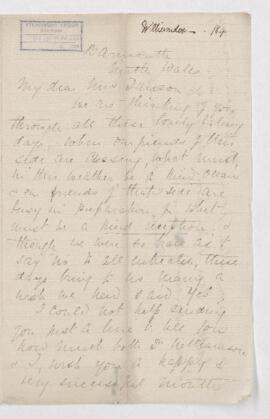 Barmouth
North Wales
My dear Mrs Dawson
we are thinking of you
through all these lovely
days, when our friends of this
side are crossing what must
in this weather be a kind ocean
& our friends of that side are
busy in preparation for what
must be a kind reception, &
though we were so hard as to
say no to all entreaties, these
days bring to us many a
wish we had said yes,
I could not help sending
you just a line to tell you
how much both Dr Williamson
& I, wish you a happy &
very successful month